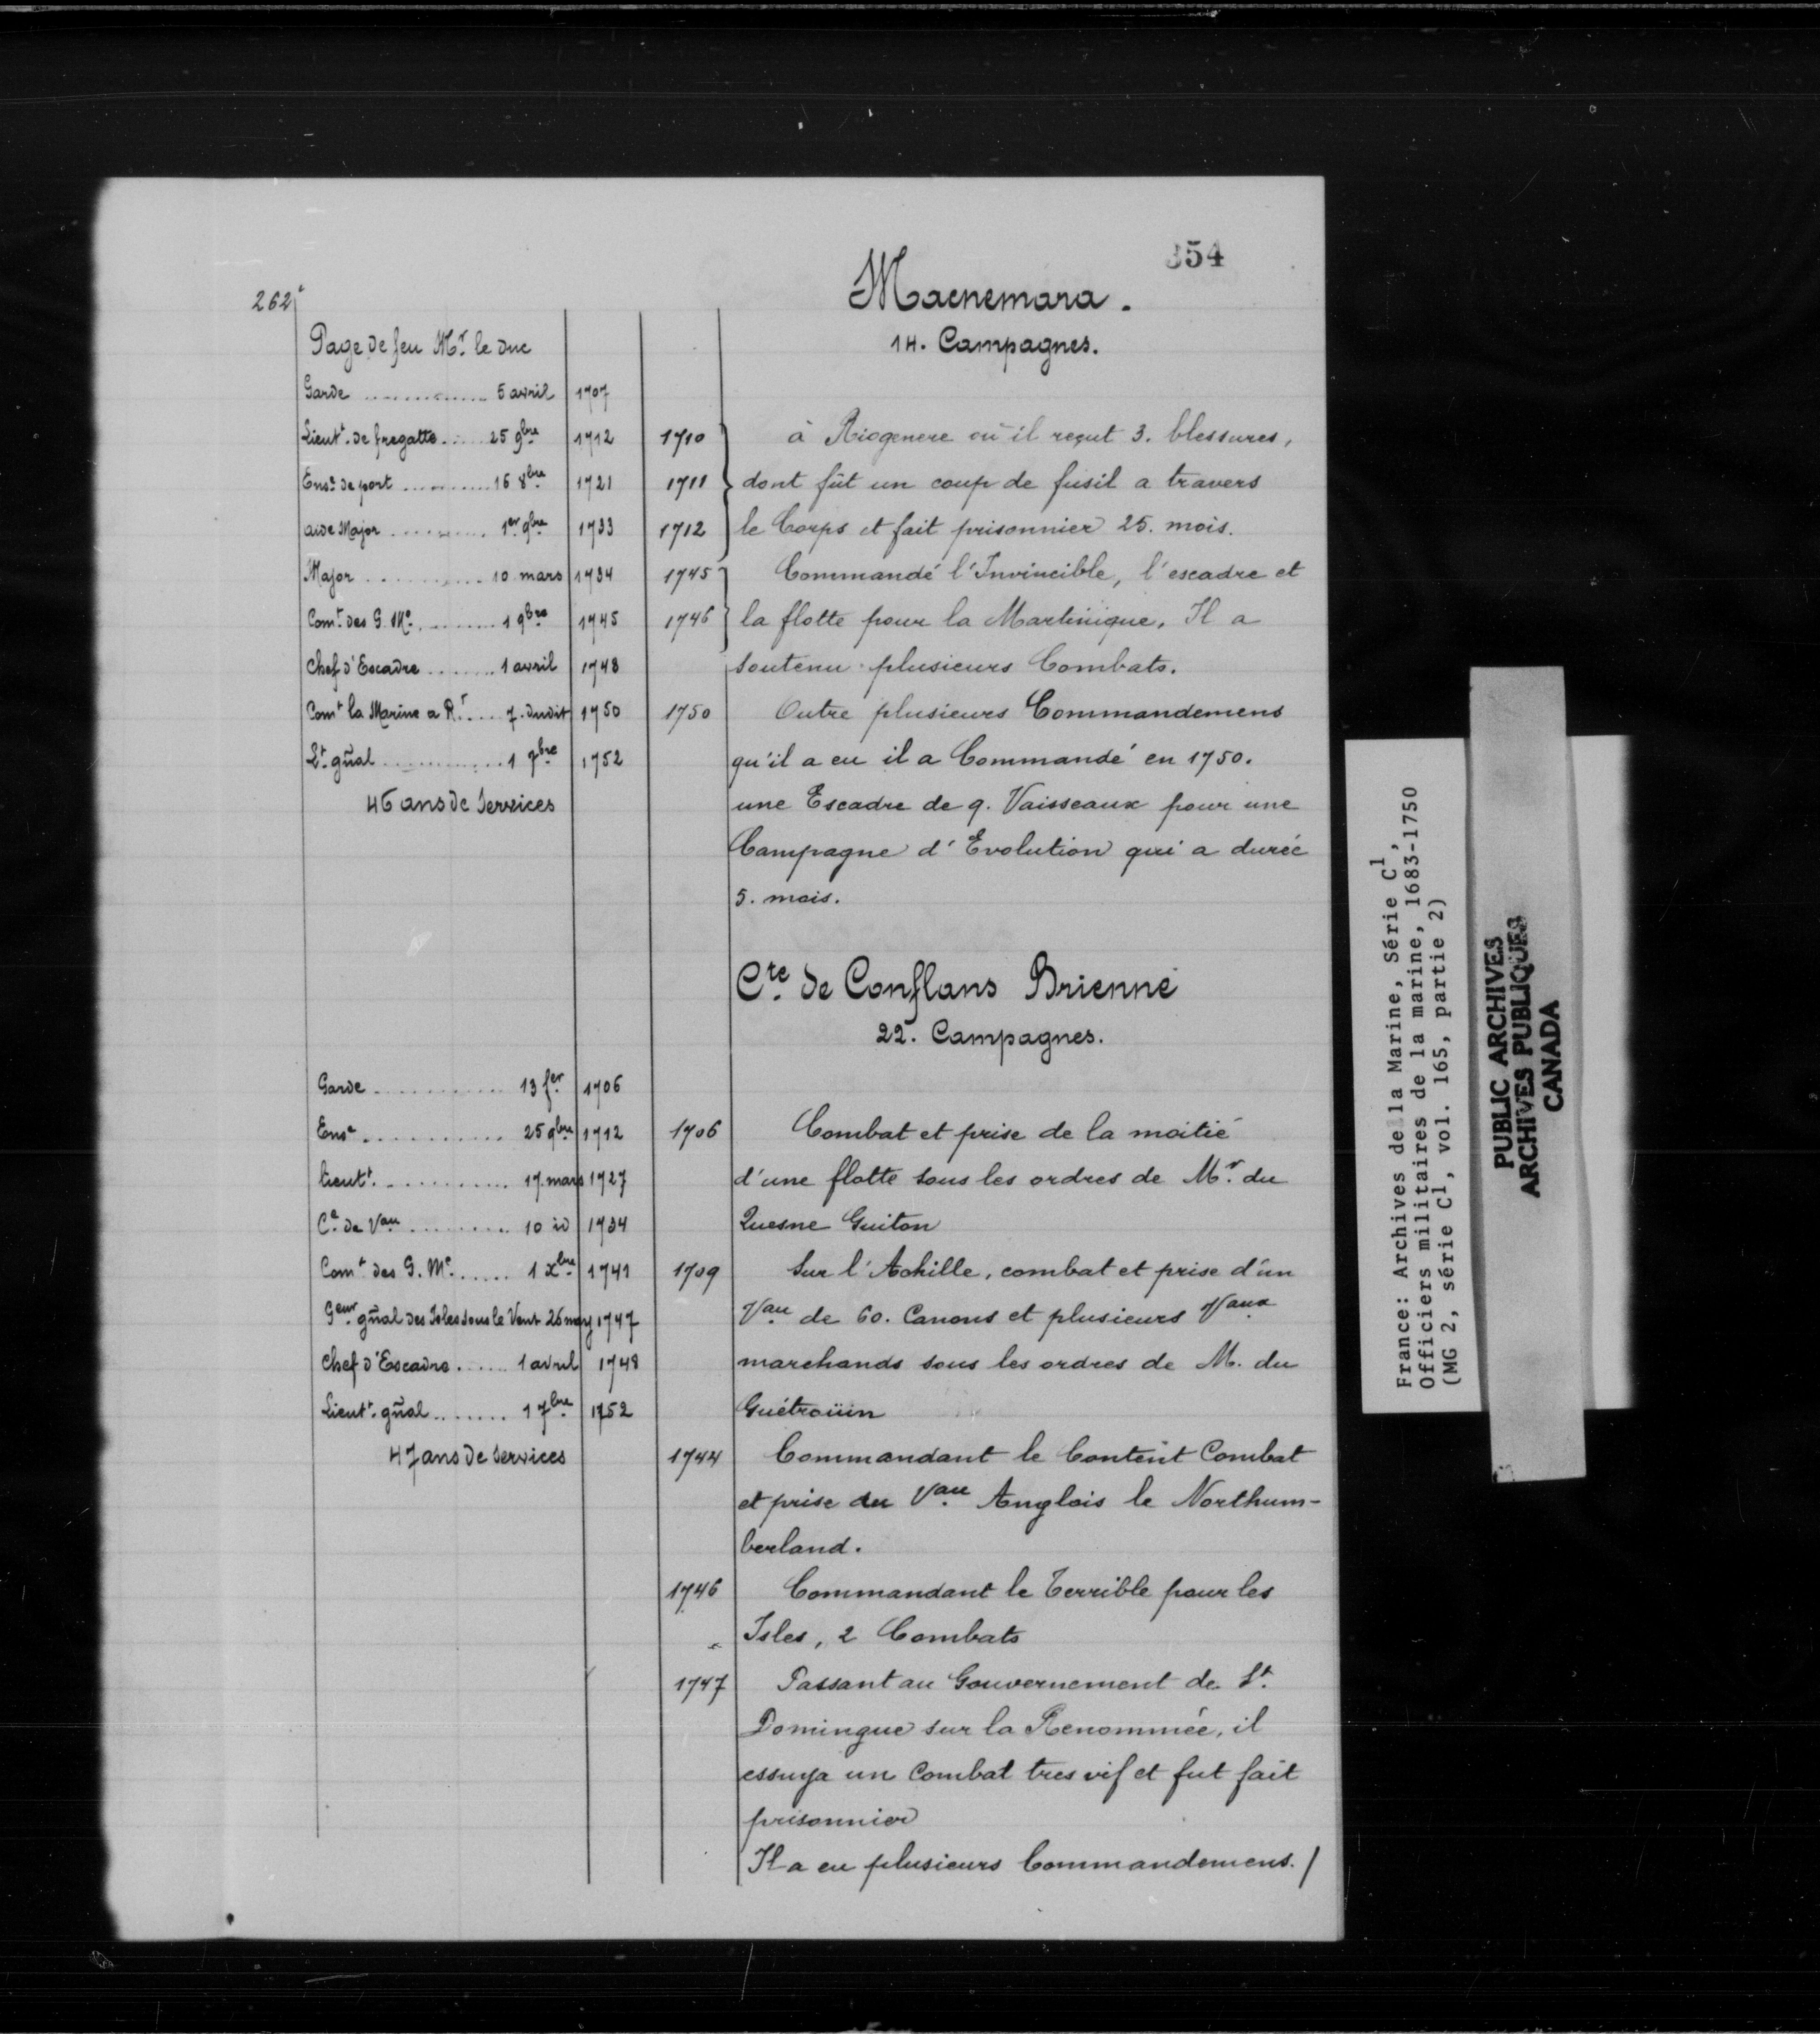 354
262
Macnemara.
14. Campagnes.
Page de feu Mr. le duc
Garde .............. 5 avril 1707
Lieutt. de fregatte ..... 25 9bre 1712
Ense de port ........... 16 8bre 1721
aide Major ........... 1er 9bre 1733
Major ............ 10 mars 1734
Comt. des G. Me. ......... 1 9bre 1745
Chef d'Escadre ........ 1 avril 1748
Comt la Marine a Rt. .... 7. dudit 1750
Lt. gñal ............. 1 7bre 1752
46 ans de Services
1710 à Riogenere où il reçut 3. blessures,
1711 dont fût un coup de fusil a travers
1712 le Corps et fait prisonnier 25. mois.
1745 Commandé l'Invincible, l'escadre et
1746 la flotte pour la Martinique. Il a
soutenu plusieurs Combats.
1750 Outre plusieurs Commandemens
qu'il a eu il a Commandé en 1750.
une Escadre de 9. Vaisseaux pour une
Campagne d'Evolution qui a durée
5. mois.
Cte. de Conflans Brienne
22. Campagnes.
Garde ............. 13 fer 1706
Ense ............ 25 9bre 1712
lieutt. ............. 17. mars 1727
Ce de Vau .......... 10 id 1734
Comt des G. Me. ...... 1 Xbre 1741
Geur gñal des Isles sous le Vent 26 may 1747
Chef d'Escadre ...... 1 avril 1748
Lieutt. gñal ........ 1 7bre 1752
47 ans de Services
1706 Combat et prise de la moitié
d'une flotte sous les ordres de Mr. du
Quesne Guiton
1709 Sur l'Achille, combat et prise d'un
Vau de 60. Canons et plusieurs Vaux
marchands sous les ordres de M. du
Guétroüin
1744 Commandant le Content Combat
et prise du Vau Anglois le Northum-
berland.
1746 Commandant le Terrible pour les
Isles, 2 Combats
1747 Passant au Gouvernement de St.
Domingue sur la Renommée, il
essuya un Combat tres vif et fut fait
prisonnier
Il a eu plusieurs Commandemens. /
France: Archives de la Marine, Série C1,
Officiers militaires de la marine, 1683-1750
(MG 2, série C1, vol. 165, partie 2)
PUBLIC ARCHIVES
ARCHIVES PUBLIQUES
CANADA